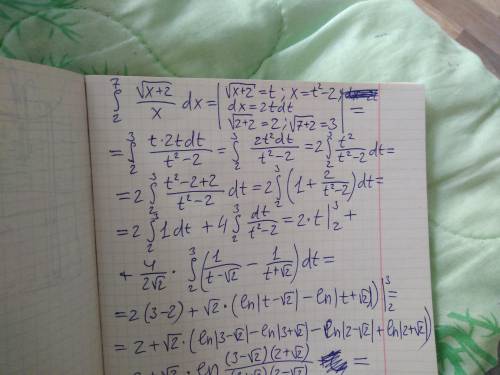 ∫₂⁷ √(x+2)/x dx = | √(x+2) = t ; x = t²-2 ;
dx = 2t dt
√(2+2) = 2 ; √(7+2) = 3 | =
= ∫₂³ t·2t dt/(t²-2) = ∫₂³ 2t²dt/(t²-2) = 2∫₂³ t²/(t²-2) dt =
= 2∫₂³ (t²-2+2)/(t²-2) dt = 2∫₂³ (1 + 2/(t²-2)) dt =
= 2∫₂³ 1 dt + 4∫₂³ dt/(t²-2) = 2·t|₂³ +
+ 4/(2√2) · ∫₂³ (1/(t-√2) - 1/(t+√2)) dt =
= 2(3-2) + √2·(ln|t-√2| - ln|t+√2|)|₂³ =
= 2 + √2·(ln|3-√2| - ln|3+√2| - ln|2-√2| + ln|2+√2|)
(3-√2)(2+√2) =